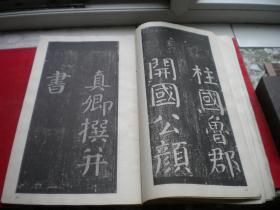 柱國魯郡
開國公顔
真卿撰并
書